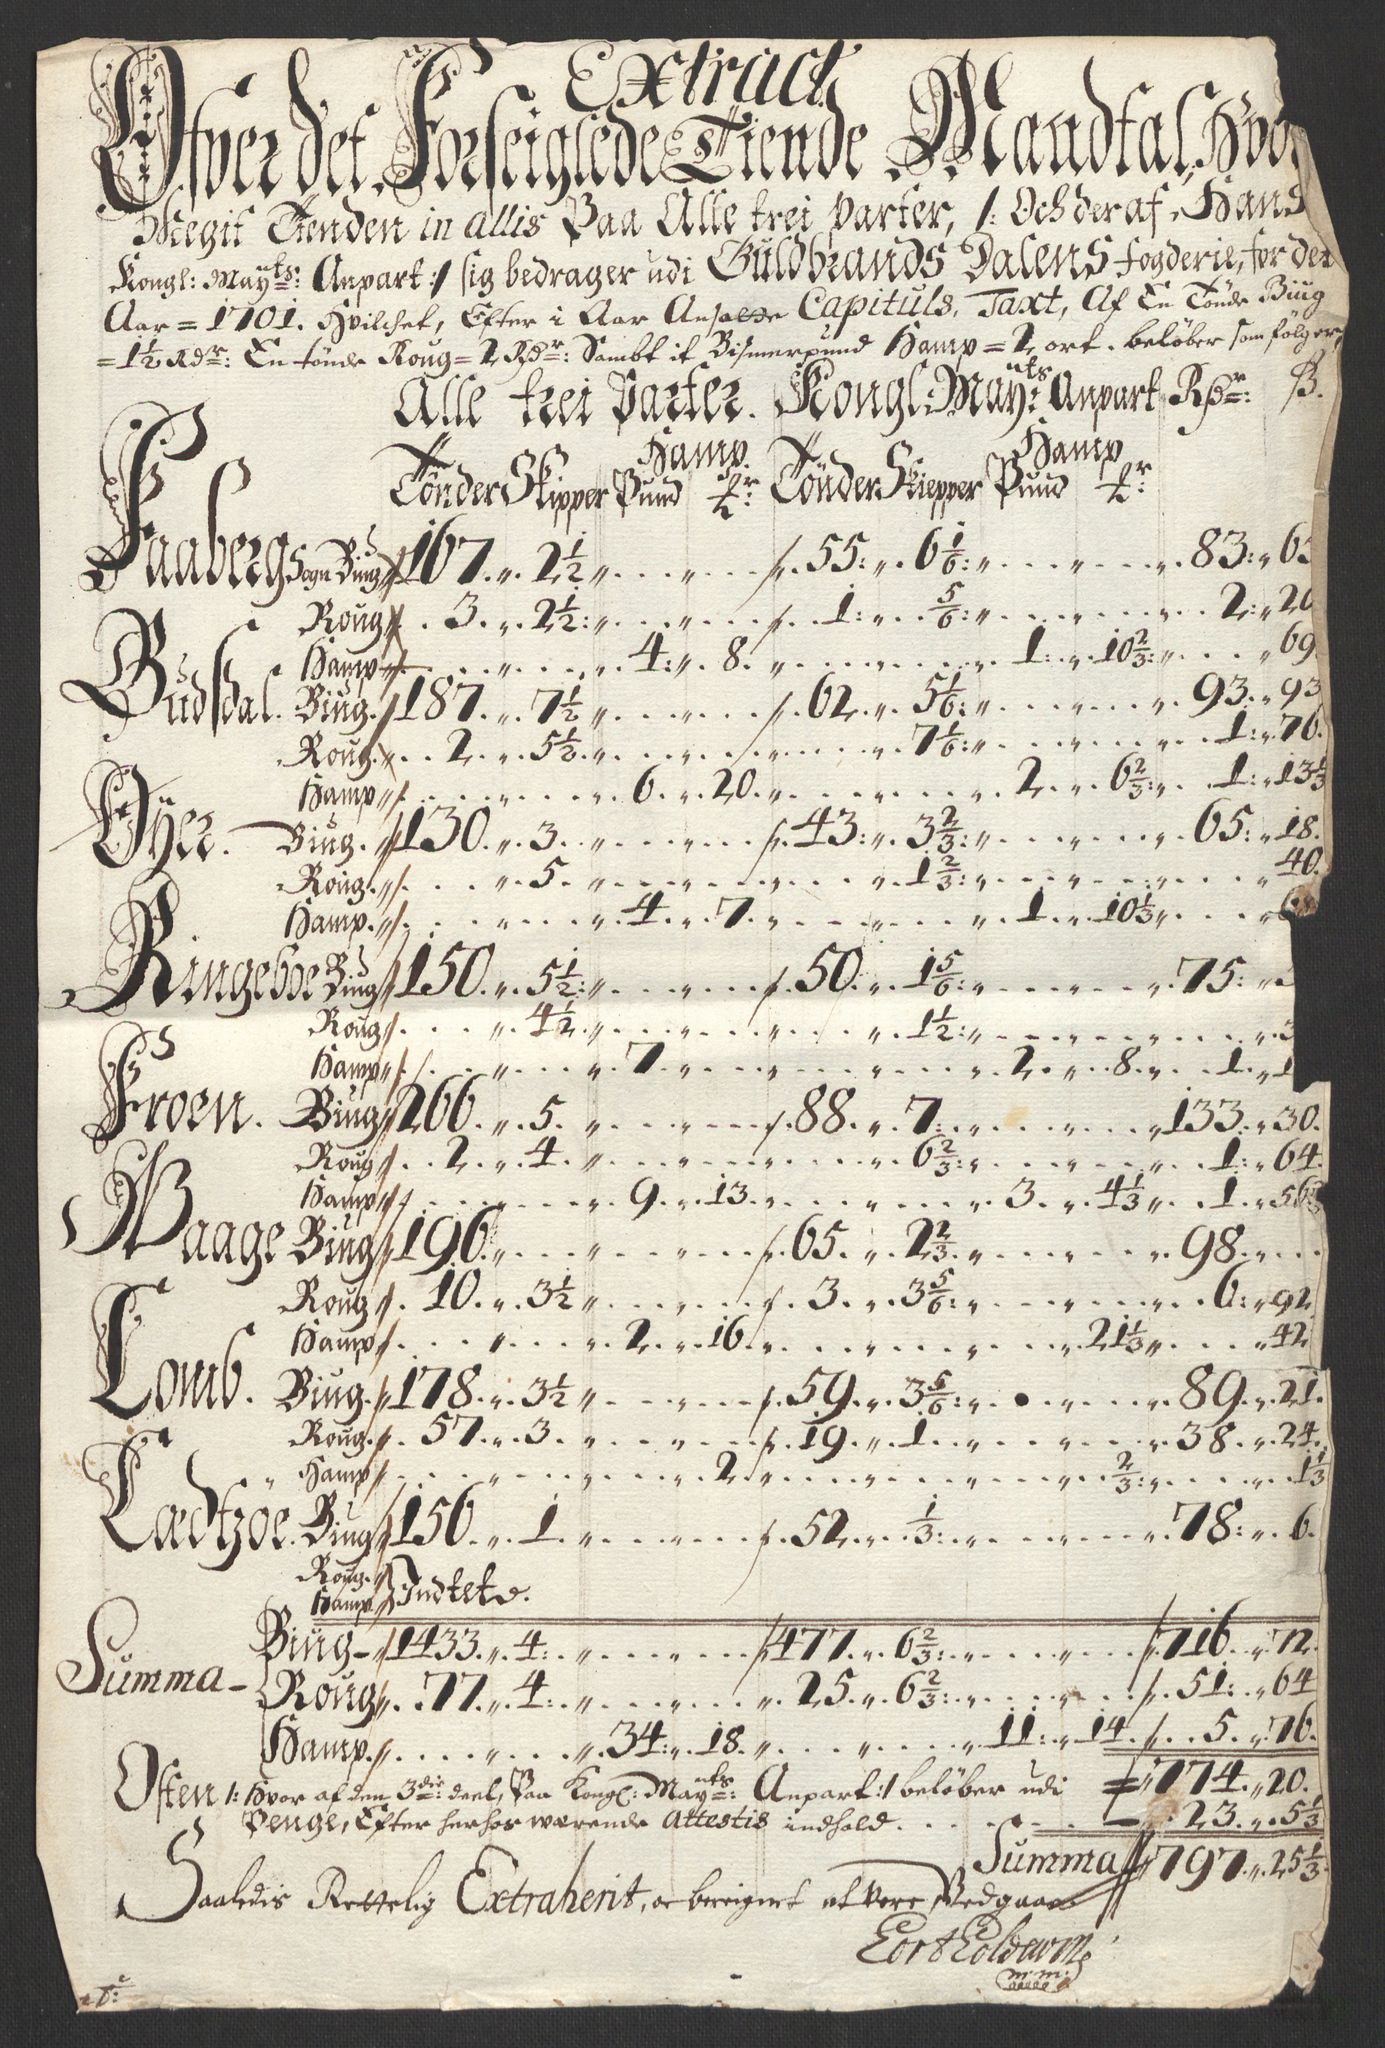 Extract
Ofver det Forseiglede Tiende Mandtal, Hvor
Megit Tienden in allis Paa Alle trei Parter, /: Och deraf, Hans
Kongl: May:ts: Anpart :/ sig bedrager udi Guldbrands Dalens fogderie, for det
Aar = 1701. Hvilchet, Efter i Aar Ansatte Capituls, Taxt, Af En Tönde Biug
= 1½ Rdr: En tönde Roug = 2 Rdr: Sambt it Bismerpund Hamp = 2 ort. belöber som fölger,
Alle trei Parter. Kongl: May:ts Anpart Rdr: ß.
Hamp. Hamp
Tönder Skipper Pund Tönder Skiepper Pund
Faaberg Sogn Biug 167 2½ 55 6 1/6 83
Roug 3 2½ 1 5/6 2
Hamp 4 8 1 10 2/3 69
Gudsdal. Biug. 187 7½ 62 5 1/6 93 93
Roug 2 5½ 7 1/6 1 76
Hamp 6 20 2 6 2/3 1 13 1/3
Öyer. Biug. 130 3 43 3 2/3 65 18
Roug. 5 1 2/3 40
Hamp. 4 7 1 10 1/3
Ringeboe Biug 150 5½ 50 1 5/6 75
Roug 4½ 1½
Hamp 7 2 8 1
Froen. Biug 266 5 88 7 133 30
Roug 2 4 6 2/3 1 64
Hamp 9 13 3 4 1/3 1
Waage Biug 196 65 2 2/3 98
Roug 10 3½ 3 3 5/6 6 92
Hamp 2 16 21 1/3 42
Lomb. Biug. 178 3½ 59 3 5/6 89 21
Roug. 57 3 19 1 38 24
Hamp 2 2/3 1 1/3
Lædtzöe. Biug 156 1 52 1/3 78 6
Roug.
Hamp Indtet.
Biug 1433 4 477 6 2/3 716 72
Summa Roug 77 4 25 6 2/3 51 64
Hamp. 34 18 11 14 5 76
Osten /: Hvor af den 3die: deel, Paa Kongl: May:ts: Anpart :/ belöber udi 774 20
Penge, Efter herhos wærende Attestis indhold. 23 5 1/3
Summa 797 25 1/3
Saaledis Rettelig Extraherit, oc bereignet at være Vedgaar